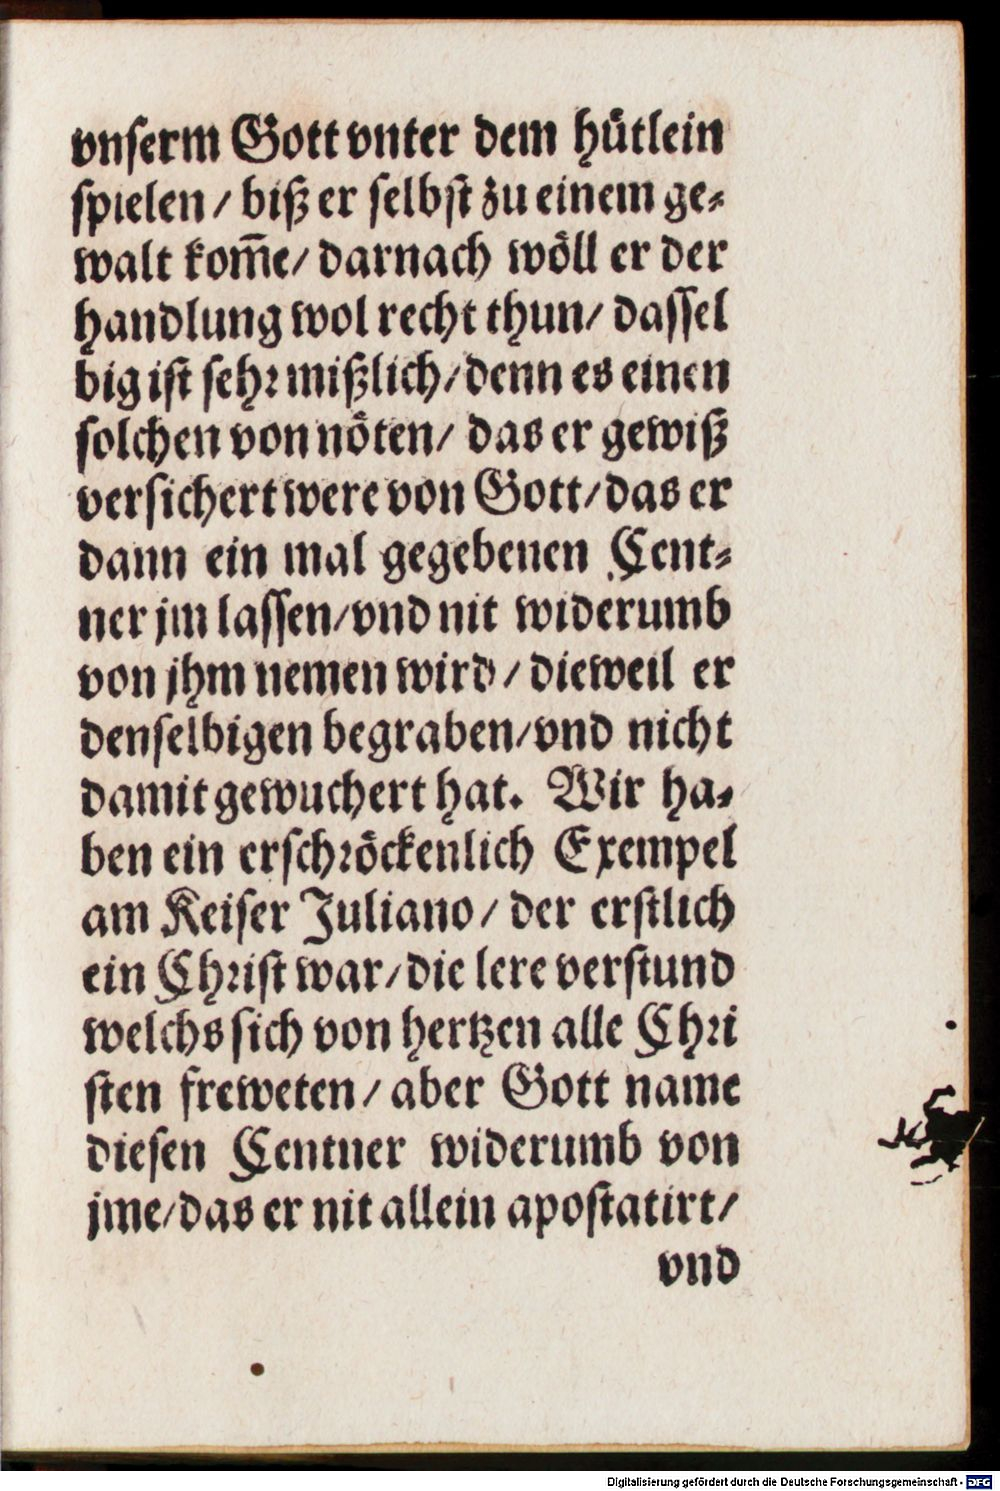 vnserm Gott vnter dem hütlein
spielen / biß er selbst zu einem ge⸗
walt kom̄e/ darnach wöll er der
handlung wol recht thun/ dassel
big ist sehr mißlich/denn es einen
solchen von nöten/ das er gewiß
versichert were von Gott/das er
dann ein mal gegebenen Cent⸗
ner jm lassen/vnd nit widerumb
von jhm nemen wird / dieweil er
denselbigen begraben/vnd nicht
damit gewuchert hat. Wir ha⸗
ben ein erschröckenlich Exempel
am Keiser Juliano / der erstlich
ein Christ war/die lere verstund
welchs sich von hertzen alle Chri
sten freweten / aber Gott name
diesen Centner widerumb von
jme/das er nit allein apostatirt/
vnd
Digitalisierung gefördert durch die Deutsche Forschungsgemeinschaft - DFG